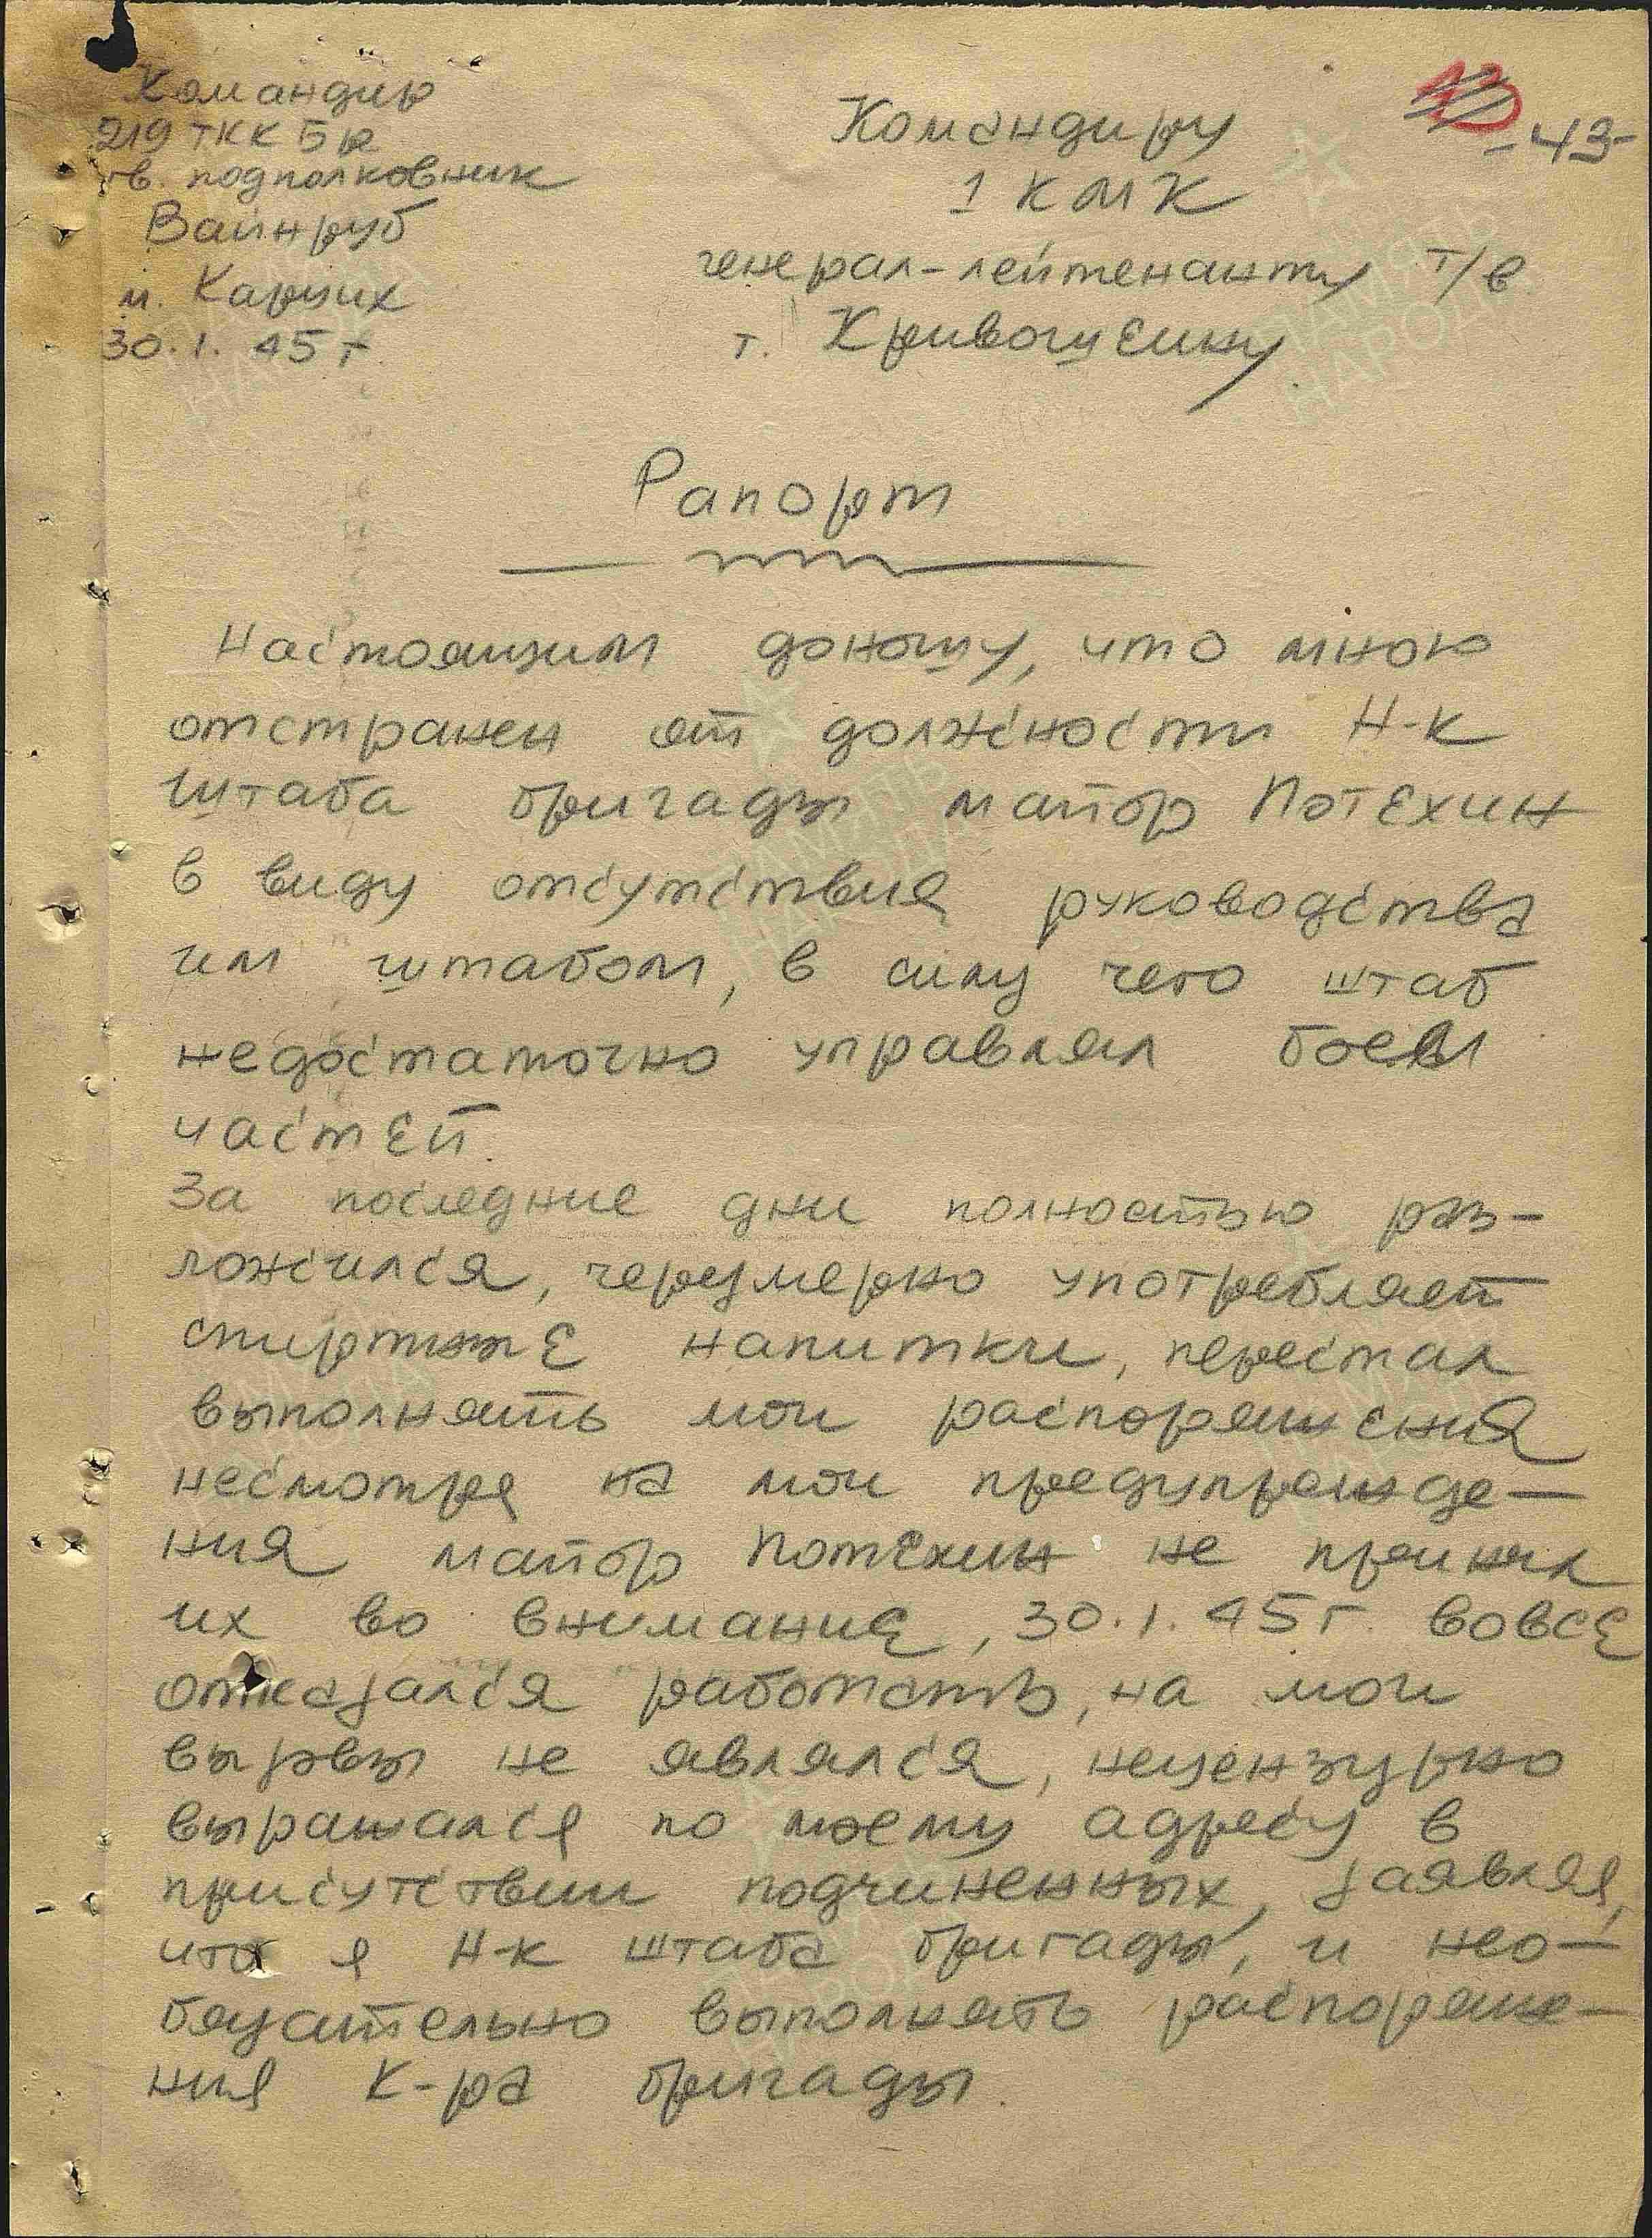 Командир
219 ТКК Бр
гв. подполковник
Вайнруб
м. Карцих
30.1.45 г
13
-43-
Командиру
1 КМК
генерал-лейтенанту т/в
т. Кривошеину
Рапорт
Настоящим доношу, что мною
отстранен от должности Н-к
штаба бригады майор Потехин
в виду отсутствия руководства
им штабом, в силу чего штаб
недостаточно управлял боем
частей.
За последние дни полностью раз-
ложился, черезмерно употребляет
спиртные напитки, перестал
выполнять мои распоряжения
несмотря на мои предупрежде-
ния майор Потехин не принял
их во внимание, 30.1.45 г. вовсе
отказался работать, на мои
вызовы не являлся, нецензурно
выражался по моему адресу в
присутствии подчиненных, заявляя,
что я Н-к штаба бригады, и нео-
бязательно выполнять распоряже-
ния К-ра бригады.